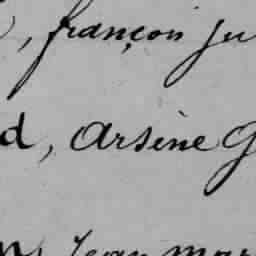 , françois Ju
d, Arsène G
Jean mar